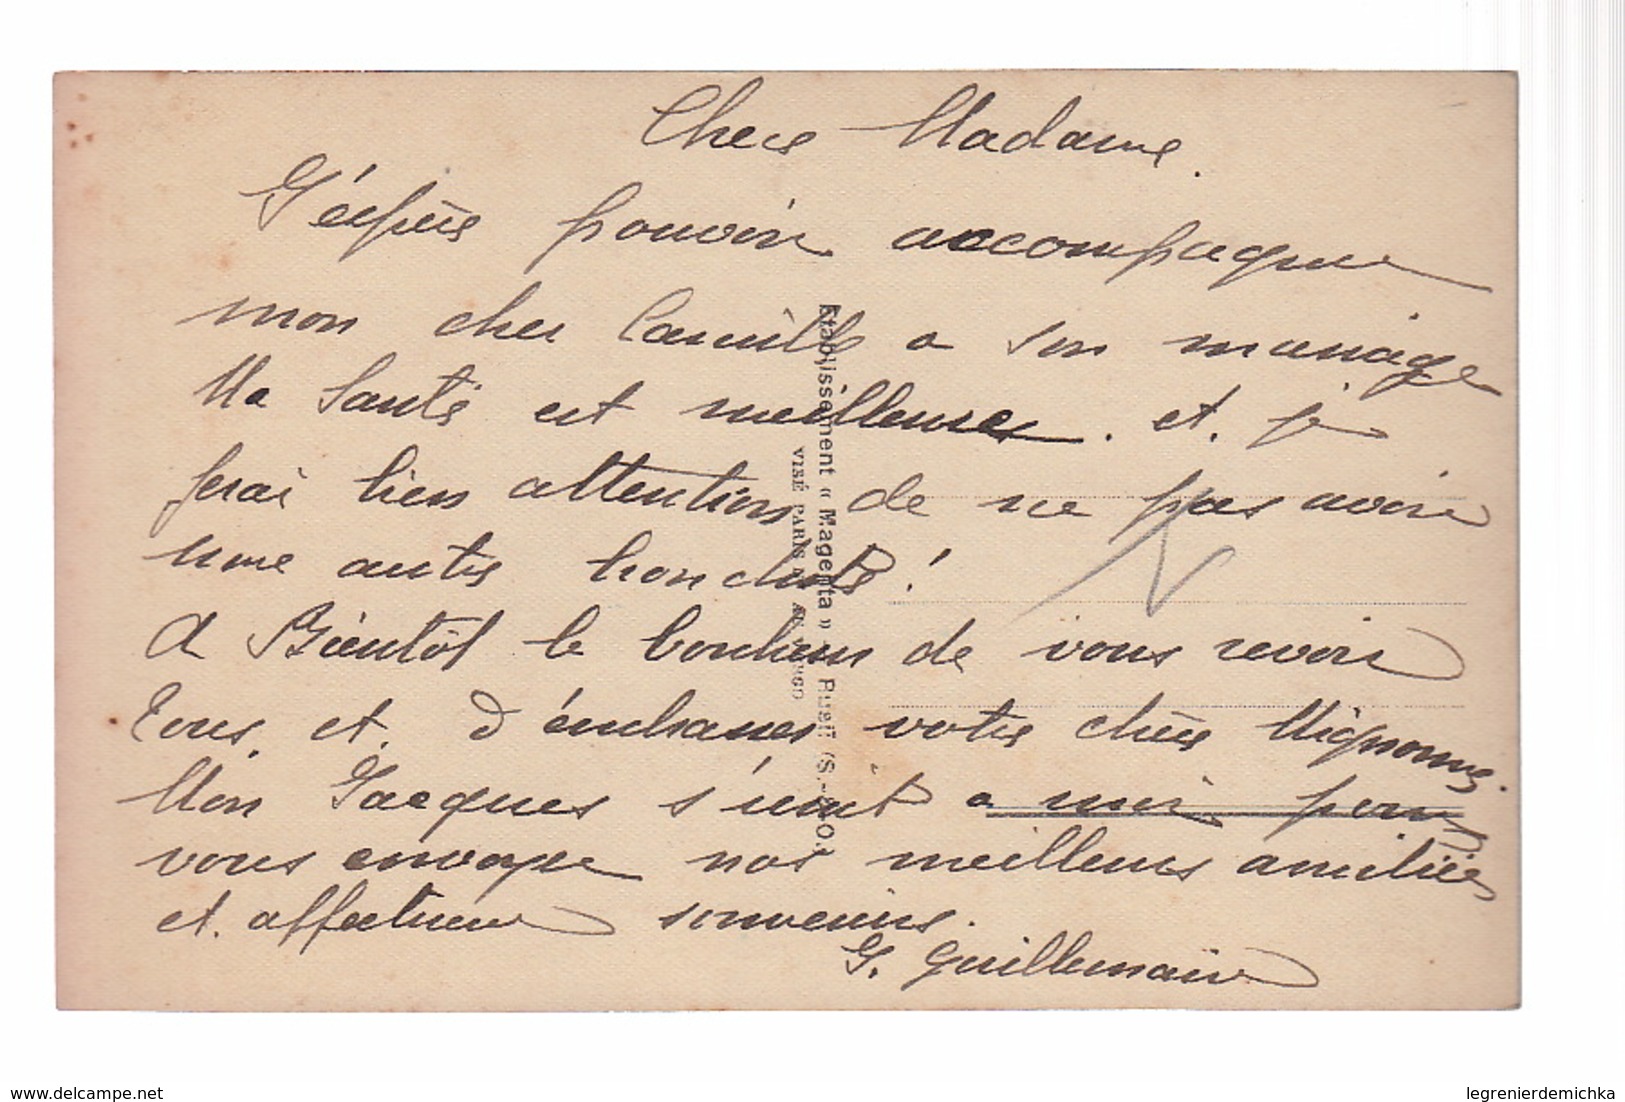 Chere Madame.
J'éspère pouvoir accompagner
mon cher Camille a son mariage
Ma Santé est meilleure. et. je
ferai bien attention de ne pas avoir
une autre bronchite!
A Bientôt le bonheur de vous revoir
Tous. et. d'émbrasser votre chère Mignonne.
Mon Jacques s'unit a moi pour
vous envoyer nos meilleurs amitiés
et. affectueux souvenirs.
G. Guillemain
Etablissement « Magenta » Rueil (S.-&-O.)
VISÉ PARIS N° AU VERSO
www.delcampe.net
legrenierdemichka